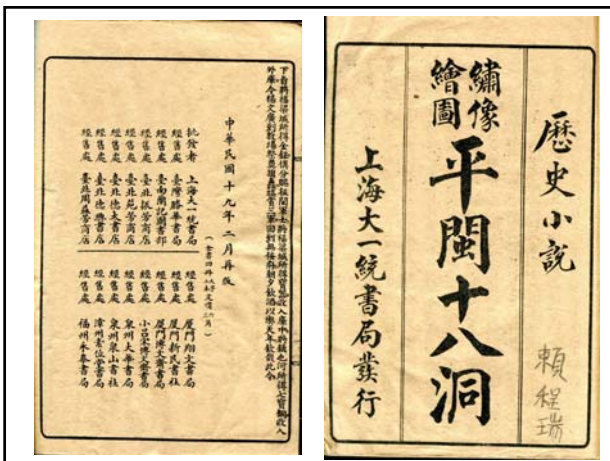 歷史小説
賴程瑞
繡像
繪圖
平閩十八洞
上海大一統書局發行
中華民國十九年二月再版
批發者 上海大一統書局
經售處 臺灣勝華書局
經售處 臺南蘭記圖書部
經售處 臺北振芳商店
經售處 臺北苑芳商店
經售處 臺北德大書店
經售處 臺北德興書店
經售處 臺北周蘇芳商店
經售處 廈門翔文書局
經售處 廈門新民書社
經售處 廈門博文齋書局
經售處 小呂宋博文齋書局
經售處 泉州大華書局
經售處 泉州泉山書社
經售處 漳州素位堂書局
經售處 福州書局